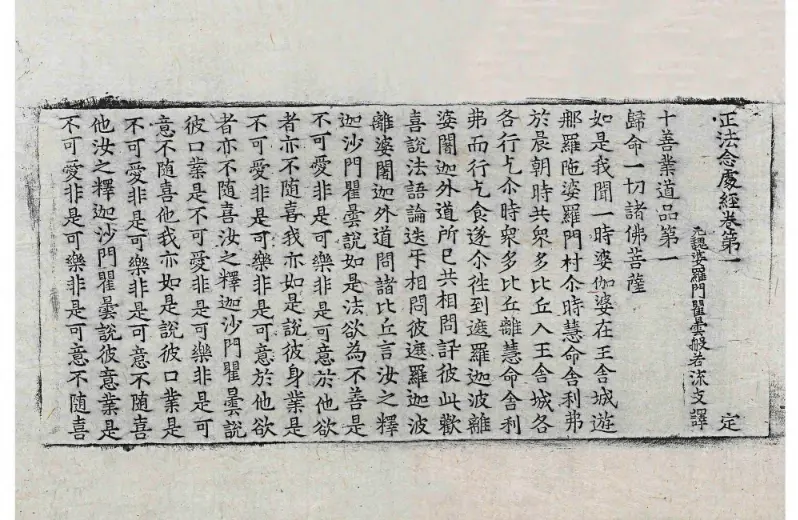 正法念處經卷第一 定
元魏婆羅門瞿曇般若流支譯
十善業道品第一
歸命一切諸佛菩薩
如是我聞一時婆伽婆在王舍城遊
那羅陁婆羅門村尒時慧命舍利弗
於晨朝時共衆多比丘入王舍城各
各行乞尒時衆多比丘離慧命舍利
弗而行乞食遂尒往到遮羅迦波離
婆闍迦外道所已共相問評彼此歡
喜說法語論迭㸦相問彼遮羅迦波
離婆闍迦外道問諸比丘言汝之釋
迦沙門瞿曇說如是法欲為不善是
不可愛非是可樂非是可意於他欲
者亦不隨喜我亦如是說彼身業是
不可愛非是可樂非是可意於他欲
者亦不隨喜汝之釋迦沙門瞿曇說
彼口業是不可愛非是可樂非是可
意不隨喜他我亦如是說彼口業是
不可愛非是可樂非是可意不隨喜
他汝之釋迦沙門瞿曇說彼意業是
不可愛非是可樂非是可意不隨喜